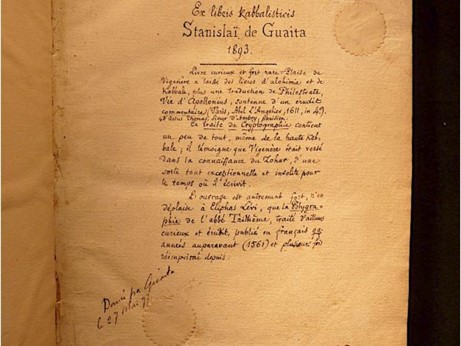 Ex libris Kabbalisticis
Stanislaï de Guaita
1893.
Livre curieux et fort rare. Blaise de
Vigenère a laissé des livres d'alchimie et de
Kabbale, plus une traduction de Philostrate,
Vie d'Apollonius, contenue d'un érudit
commentaire (Paris, Abel l'Angelier, 1611, in 4º).
et Artus Thomas, Sieur d'Embry,
Le traité de Cryptographie contient
un peu de tout, même de la haute Kab-
bale; il témoigne que Vigenère était versé
dans la connaissance du Zohar, d'une
sorte tout exceptionnelle et insolite pour
le temps où il écrivit.
L'ouvrage est autrement fort, n'en
déplaise à Eliphas Lévi, que la Polygra-
phie de l'abbé Trithème, traité d'ailleurs
curieux et érudit, publié en français
années auparavant (1561) et plusieurs fois
réimprimé depuis.
Donné par Guaita
le 27 Mai